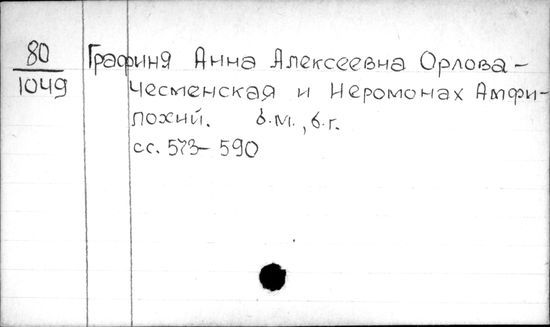 80
1049
Графиня Анна Алексеевна Орлова-
Чесменская и Иеромонах Амфи-
лохий. б.м., б.г.
сс. 573-590